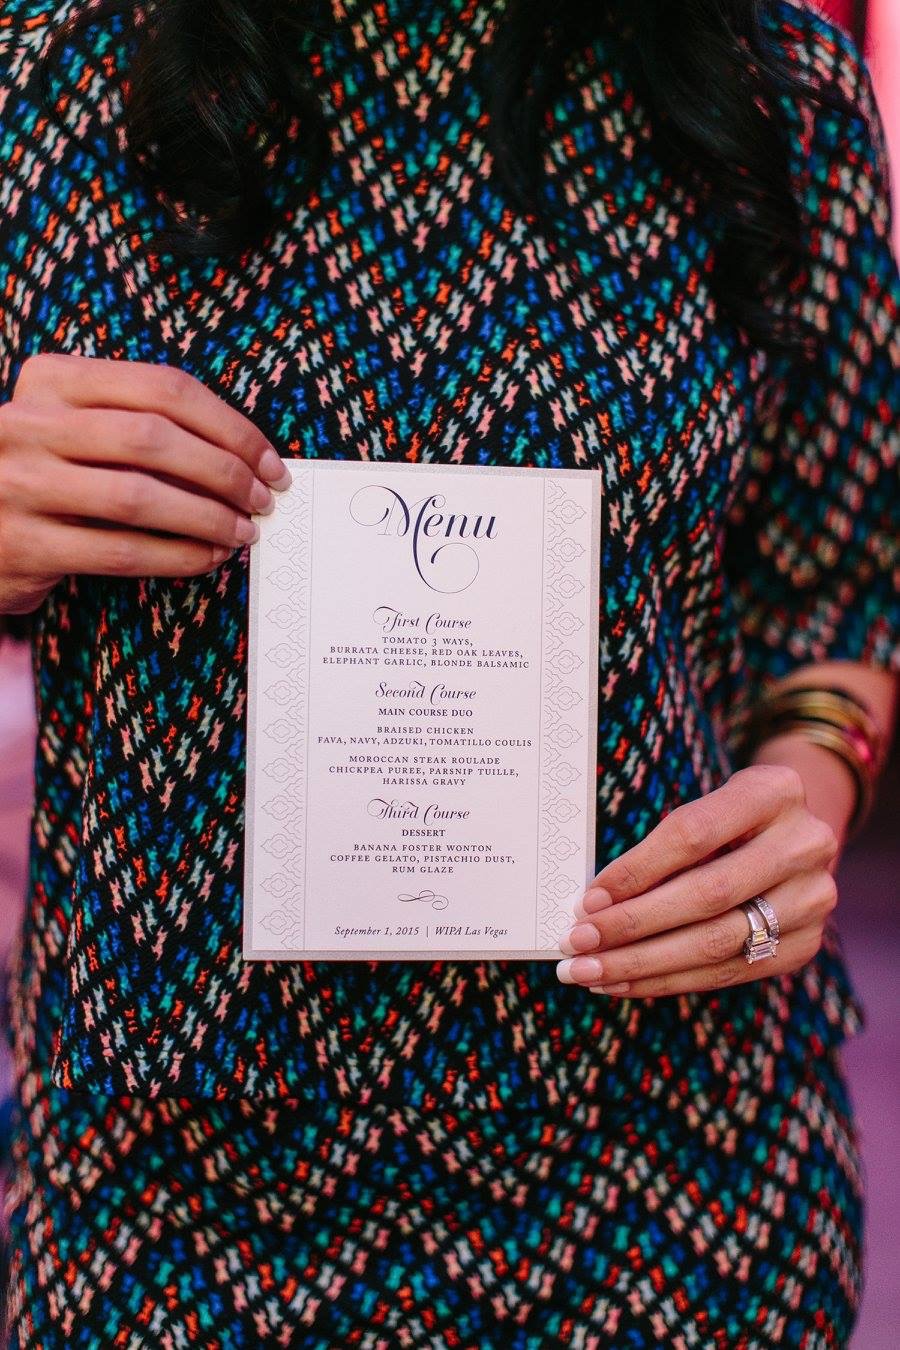 Menu
First Course
TOMATO 3 WAYS,
BURRATA CHEESE, RED OAK LEAVES,
ELEPHANT GARLIC, BLONDE BALSAMIC
Second Course
MAIN COURSE DUO
BRAISED CHICKEN
FAVA, NAVY, ADZUKI, TOMATILLO COULIS
MOROCCAN STEAK ROULADE
CHICKPEA PUREE, PARSNIP TUILLE,
HARISSA GRAVY
Third Course
DESSERT
BANANA FOSTER WONTON
COFFEE GELATO, PISTACHIO DUST,
RUM GLAZE
September 1, 2015 | WIPA Las Vegas